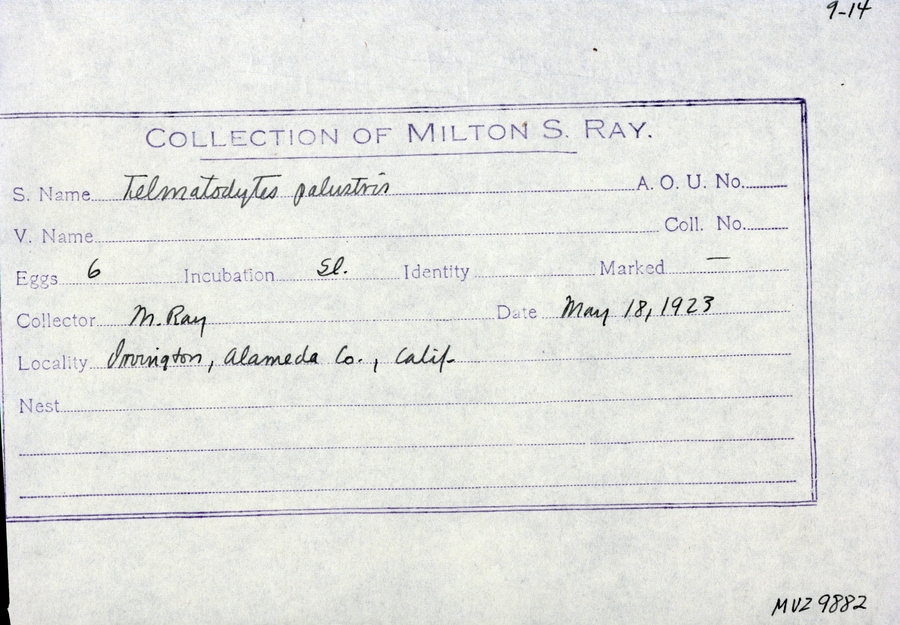 9-14
COLLECTION OF MILTON S. RAY.
S. Name Telmatodytes palustris A. O. U. No.
V. Name Coll. No.
Eggs 6 Incubation Sl. Identity Marked —
Collector M. Ray Date May 18, 1923
Locality Irvington, Alameda Co., Calif.
Nest
MVZ 9882